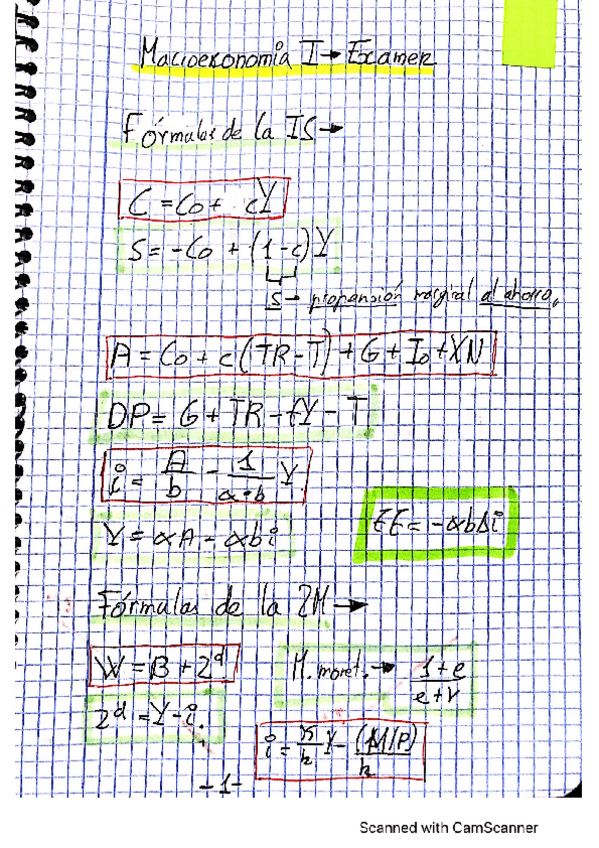 Macroeconomía I → Examen
Fórmulas de la IS →
C = Co + cY
S = -Co + (1-c)Y
S → propensión marginal al ahorro.
A = Co + c(TR-T) + G + Io + XN
DP = G + TR - tY - T
i = A/b - 1/α·b Y
Y = αA - αbi
EE = -αbΔi
Fórmulas de la LM →
W = B + L^d
M. monet. → 1+e/e+r
L^d = Y-i.
i = K/h Y - (M/P)/h
-1-
Scanned with CamScanner